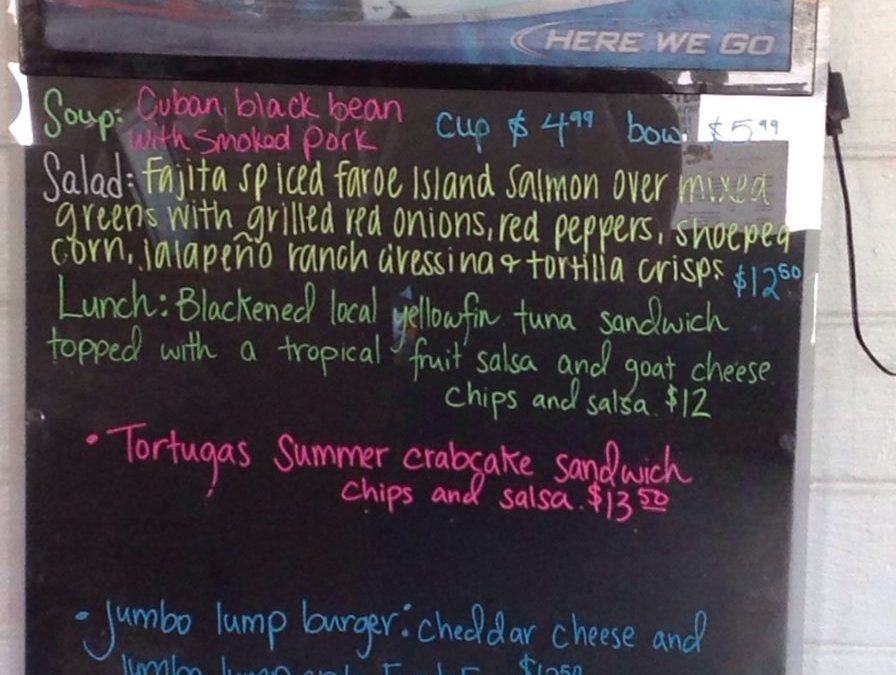 HERE WE GO
Soup: Cuban black bean
with smoked pork
cup $4.99 bowl $5.99
Salad: Fajita spiced faroe Island Salmon over mixed
greens with grilled red onions, red peppers, shoepeg
corn, jalapeño ranch dressing & tortilla crisps $12.50
Lunch: Blackened local yellowfin tuna sandwich
topped with a tropical fruit salsa and goat cheese
chips and salsa. $12
• Tortugas Summer crabcake sandwich
chips and salsa. $13.50
• Jumbo lump burger: cheddar cheese and
Jumbo lump